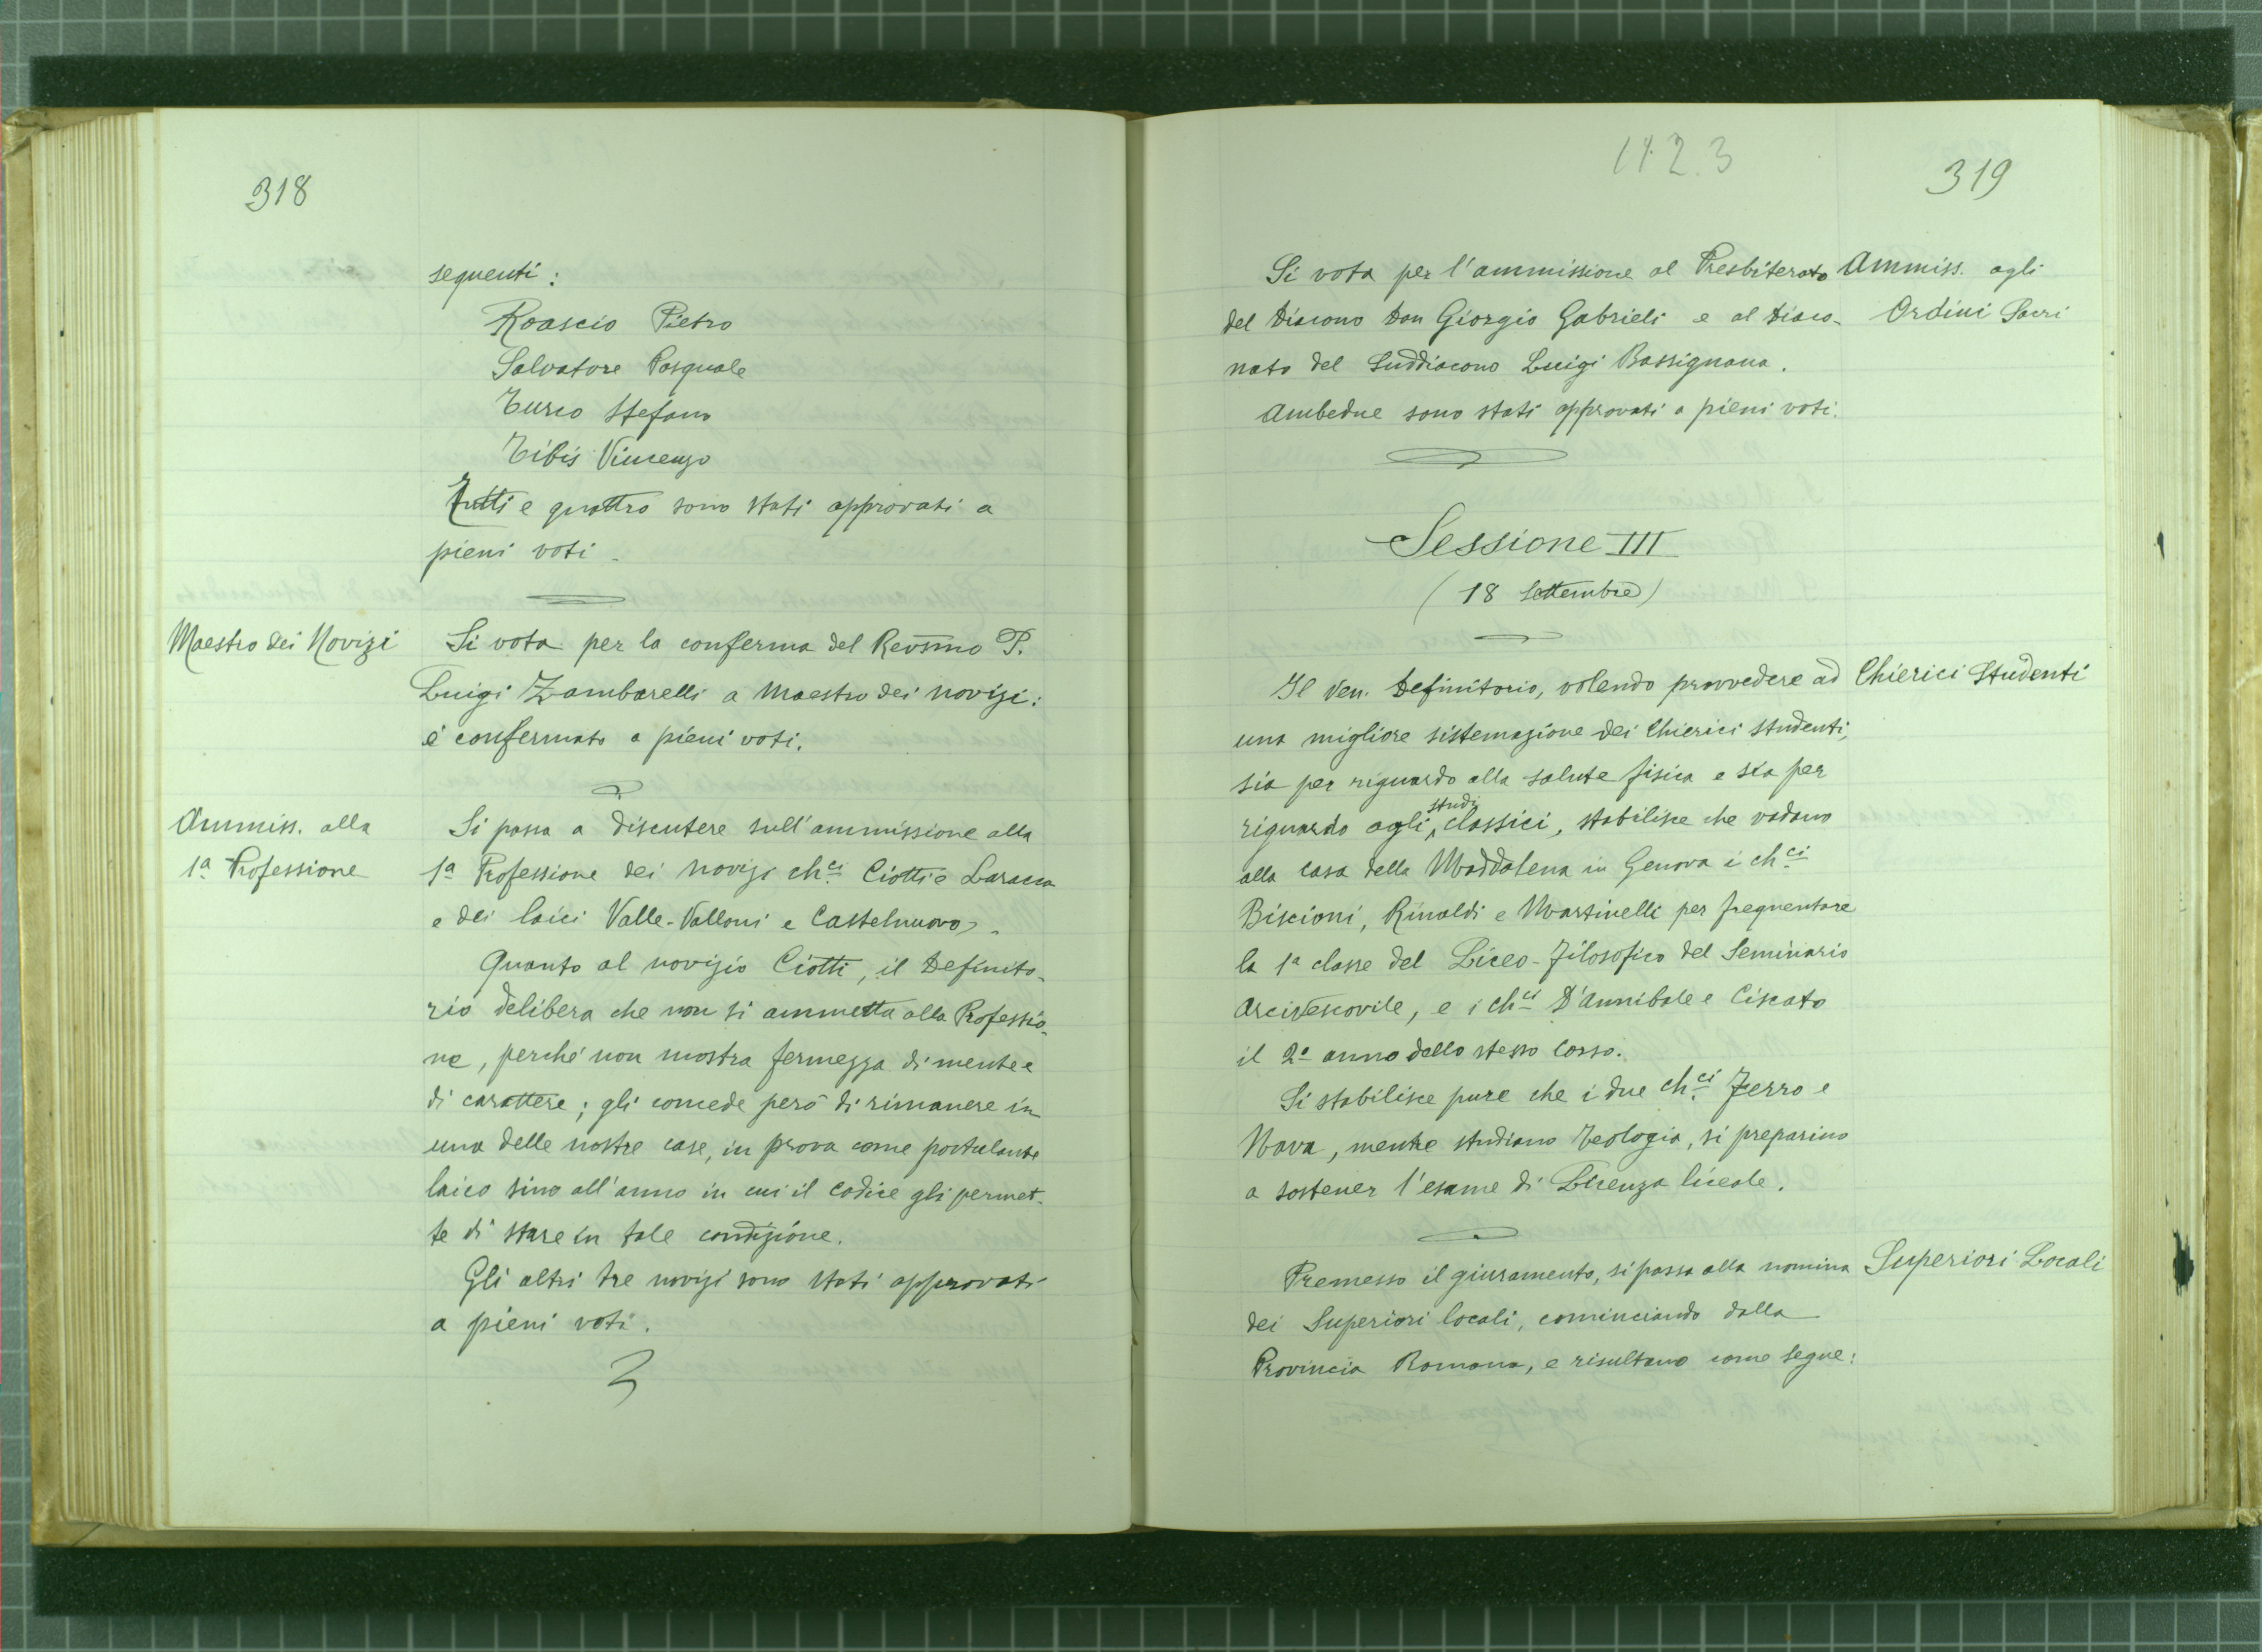 318
seguenti:
Roascio Pietro
Salvatore Pasquale
Turco Stefano
Tibis Vincenzo
Tutti e quattro sono stati approvati a
pieni voti
Maestro dei Novizi
Si vota per la conferma del Revsmo P.
Luigi Zambarelli a Maestro dei novizi:
è confermato a pieni voti.
Ammiss. alla
1ª Professione
Si passa a discutere sull'ammissione alla
1ª Professione dei novizi ch.ci Ciotti e Laracca
e dei laici Valle-Valloni e Castelnuovo.
Quanto al novizio Ciotti, il Definito-
rio delibera che non si ammetta alla Professio-
ne, perché non mostra fermezza di mente e
di carattere; gli concede però di rimanere in
una delle nostre case, in prova come postulante
laico sino all'anno in cui il Codice gli permet-
te di stare in tale condizione.
Gli altri tre novizi sono stati approvati
a pieni voti.
3
319
Si vota per l'ammissione al Presbiterato
del Diacono Don Giorgio Gabrieli e al Diaco-
nato del Suddiacono Luigi Bassignana.
Ambedue sono stati approvati a pieni voti.
Ammiss. agli
Ordini Sacri
Sessione III
(18 Settembre)
Il Ven. Definitorio, volendo provvedere ad
una migliore sistemazione dei Chierici studenti,
sia per riguardo alla salute fisica e sia per
riguardo agli studi classici, stabilisce che vadano
alla casa della Maddalena in Genova i ch.ci
Biscioni, Rinaldi e Martinelli per frequentare
la 1ª classe del Liceo-Filosofico del Seminario
Arcivescovile, e i ch.ci D'Annibale e Ciscato
il 2º anno dello stesso corso.
Si stabilisce pure che i due ch.ci Ferro e
Nava, mentre studiano Teologia, si preparino
a sostener l'esame di Licenza liceale.
Chierici Studenti
Premesso il giuramento, si passa alla nomina
dei Superiori locali, cominciando dalla
Provincia Romana, e risultano come segue:
Superiori Locali